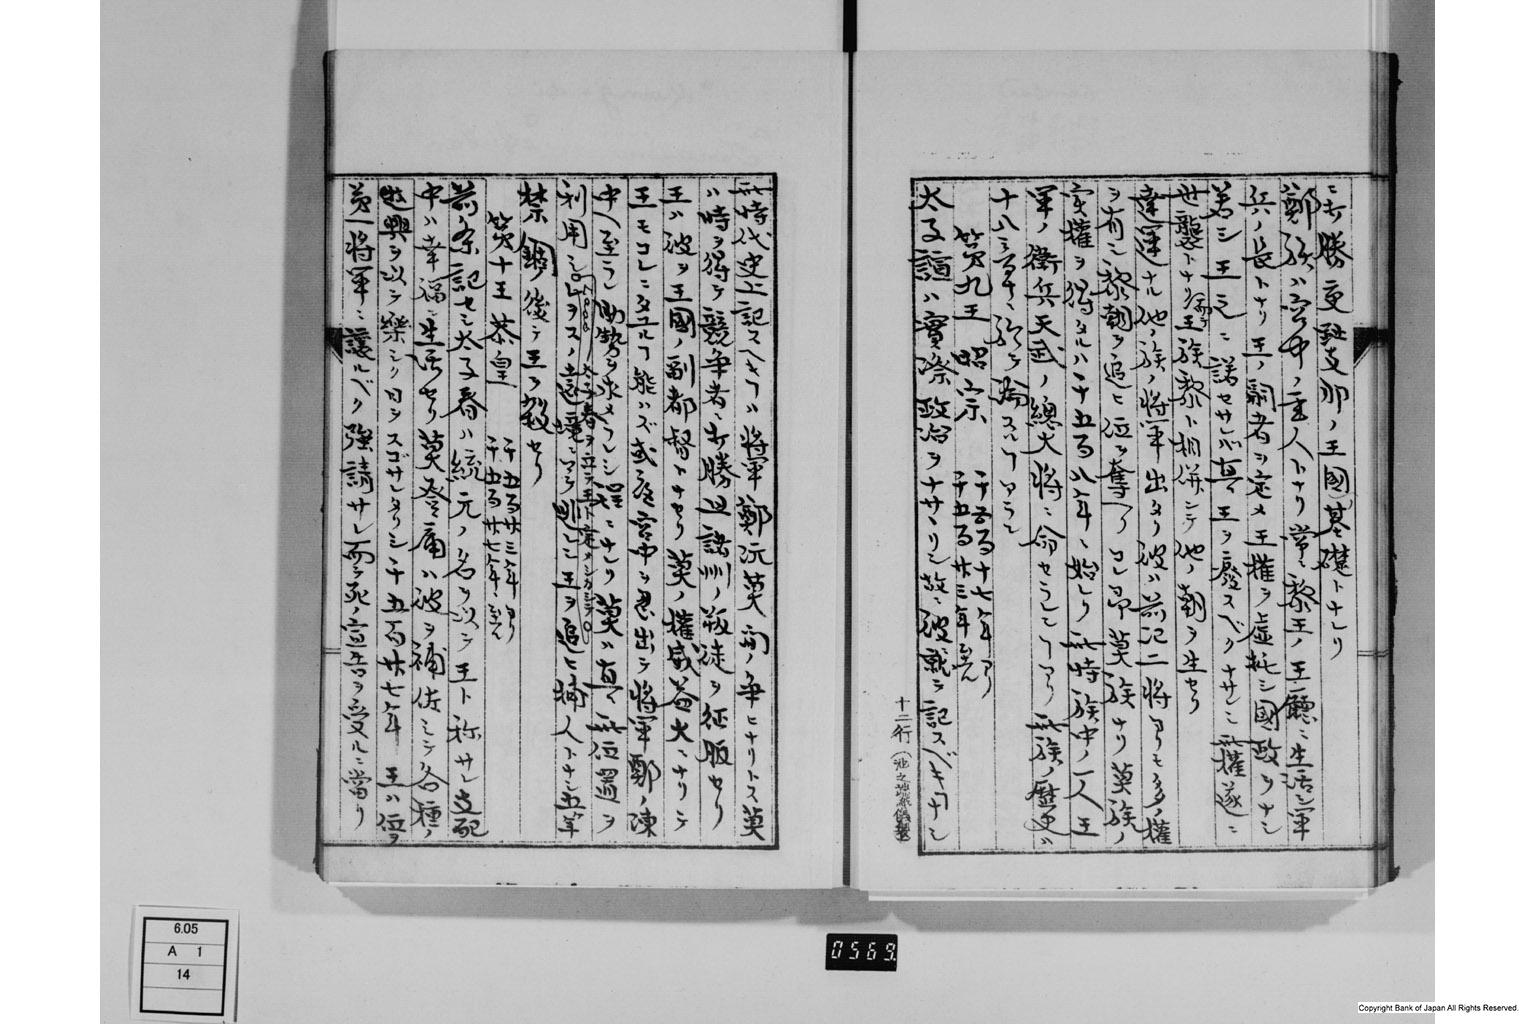 ニ打勝交趾支那ノ王國ノ基礎トナレリ
鄭族ハ宮中ノ主人トナリ常ニ黎王ノ王廳ニ生活シ軍
兵ノ長トナリ王ノ嗣者ヲ定メ王權ヲ虚托シ國政ヲナシ
若シ王之ニ諾セサレバ其王ヲ廢スベクナサレシ此權遂ニ
世襲トナリ王族黎ト相併シテ他ノ朝ヲ生セリ
幸運ナル他ノ族ノ將軍出タリ彼ハ前記二將ヨリモ多ノ權
ヲ有シ黎朝ヲ追ヒ位ヲ奪フコレ即莫族ナリ莫族ノ
実權ヲ得タルハ千五百八年ニ始レリ此時族中ノ一人王
軍ノ衞兵天武ノ總大將ニ命セラレシフアリ此族ノ歴史ハ
十八
第九王 昭宗 千五百十七年ヨリ 千五百廿三年ニ至ル
太子譓ハ實際政治ヲナサヽリシ故ニ彼就テ記スベキヿナシ
十二行
此時代史上記スヘキヿハ將軍鄭阮莫 間ノ争ヒナリトス莫
ハ時ヲ得テ競争者ニ打勝且諸州ノ叛徒ヲ征服セリ
王ハ彼ヲ王國ノ副都督トナセリ莫ノ權威益大ニナリテ
王モコレニタユルヿ能ハズ或夜宮中ヲ忍出テ將軍鄭ノ陳
中ヘ至ラレ助勢ヲ求メラレシ程ニナレリ莫ハ其此位置ヲ
利用シ 王ヲ追ヒ擒人トナシ五年
禁錮ノ後ニ王ヲ殺セリ
第十王 恭皇 千五百廿三年ヨリ 千五百廿七年ニ至ル
前条記セシ太子春ハ統元ノ名ヲ以テ王ト称サレ支配
中ハ幸福ニ生活セリ莫登庸ハ彼ヲ補佐シテ各種ノ
遊興ヲ以テ樂シク日ヲスゴサレタリシニ千五百廿七年 王ハ位ヲ
莫將軍ニ讓ルベク強請サレ而テ死ノ宣告ヲ受ルニ當リ
6.05
A 1
14
0569.
Copyright Bank of Japan All Rights Reserved.